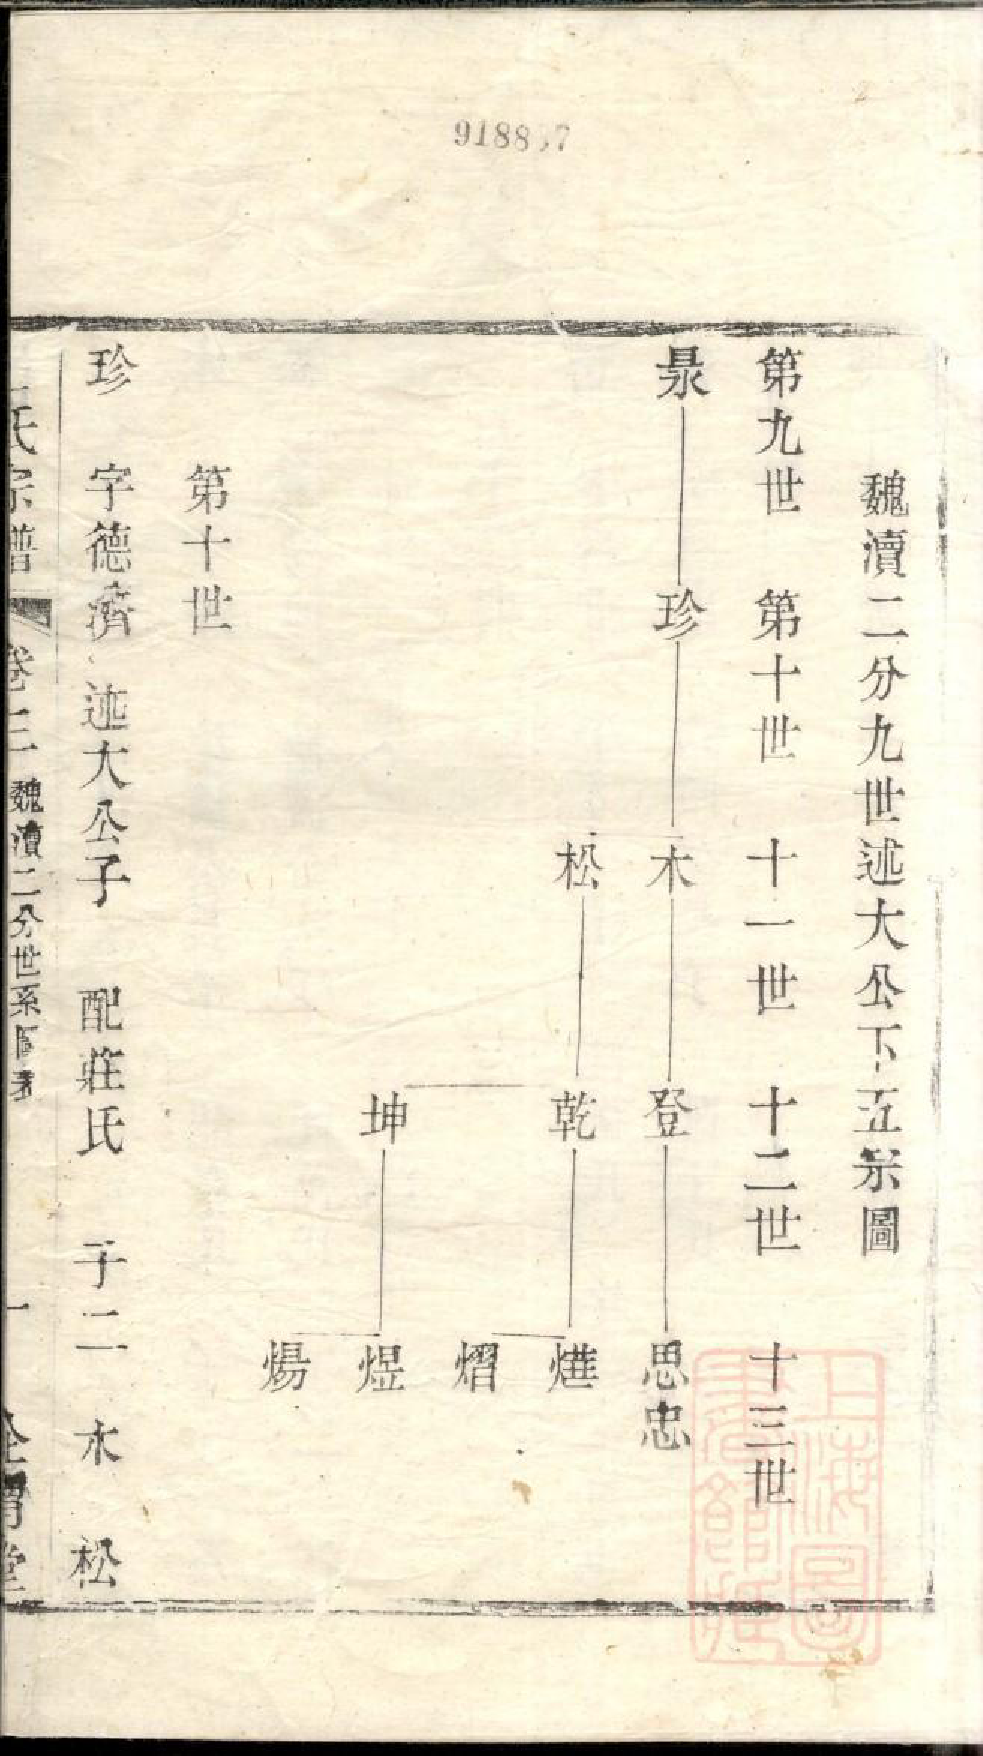 魏瀆二分九世述大公下五示圖
第九世 第十世 十一世 十二世 十三世
珍 木 登 思忠
松 乾 燁
熠
坤 煜
煬
第十世
珍 字德濟 述大公子 配莊氏 子二 木 松
氏宗譜 卷三 魏瀆二分世系圖 一 堂
上海圖書館藏